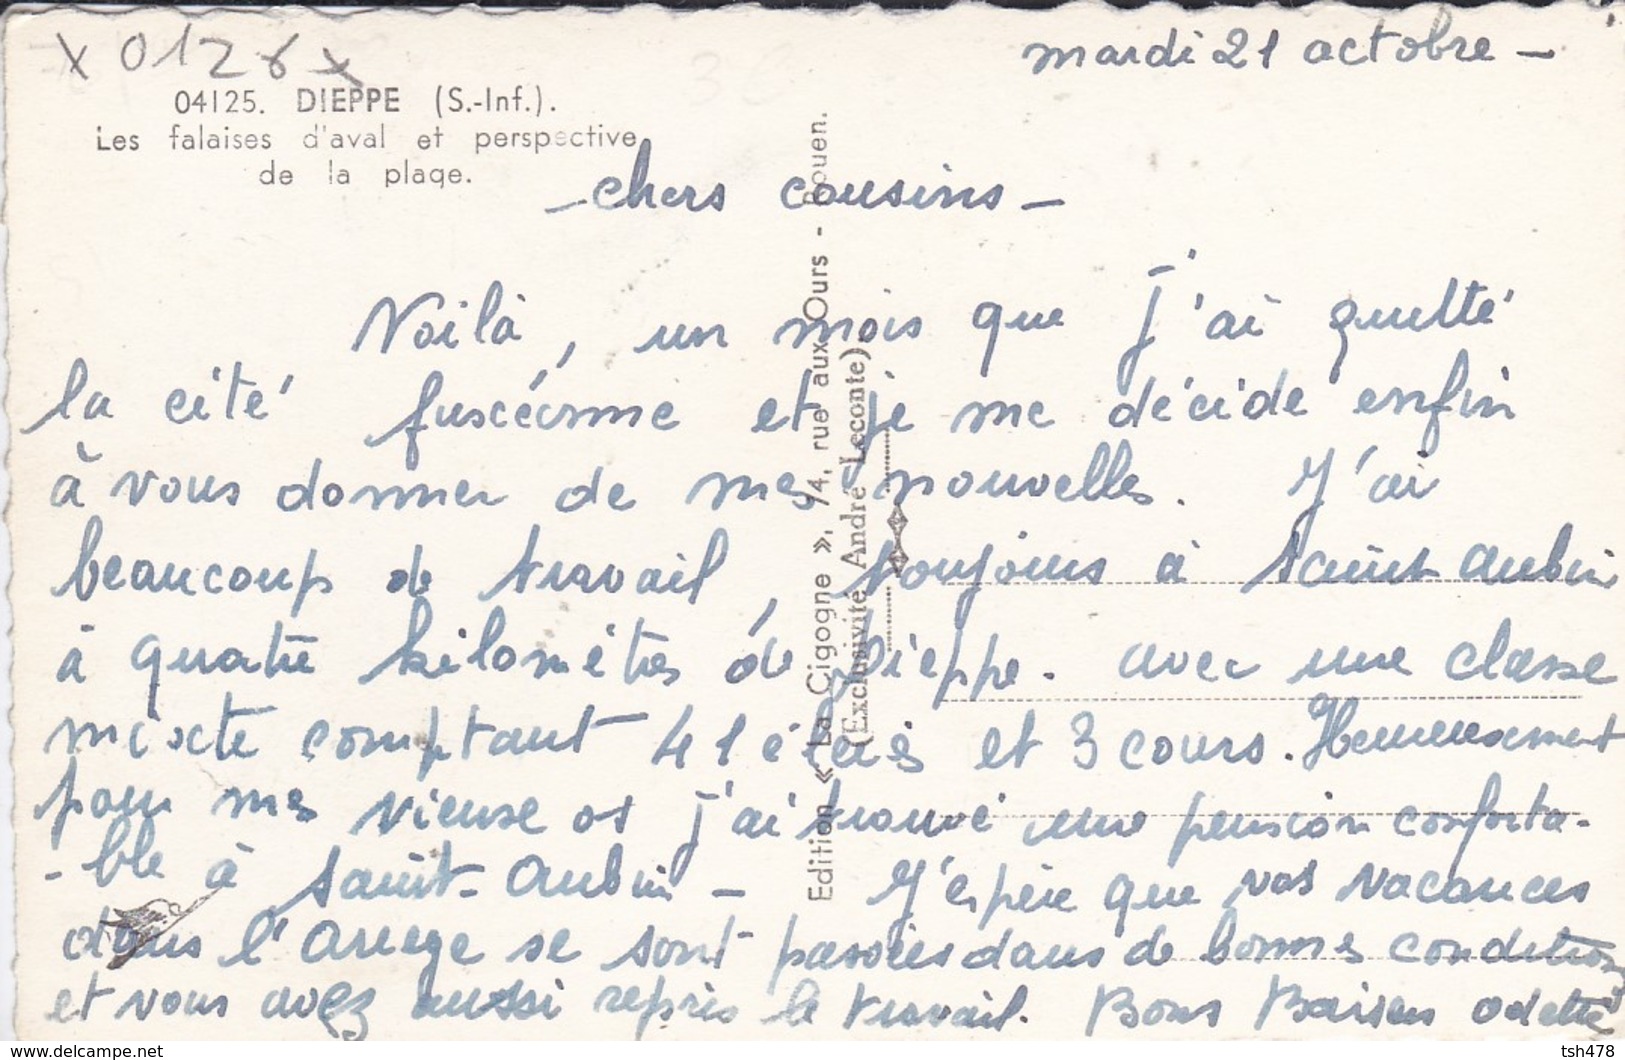 x 0126 x
mardi 21 octobre -
04125. DIEPPE (S.-Inf.).
Les falaises d'aval et perspective
de la plage.
- chers cousins -
Voilà, un mois que j'ai quitté
la cité fuxéenne et je me décide enfin
à vous donner de mes nouvelles. J'ai
beaucoup de travail, toujours à Saint Aubin
à quatre kilomètres de Dieppe. avec une classe
mixte comptant 41 élèves et 3 cours. Heureusement
pour mes vieux os j'ai trouvé une pension conforta-
-ble à Saint-Aubin - J'espère que vos vacances
dans l'Ariege se sont passées dans de bonnes conditions
et vous avez aussi repris le travail. Bons Baisers Odette
Edition « La Cigogne », 74, rue aux Ours - Rouen.
(Exclusivité André Leconte)
https://www.delcampe.net
tsh478